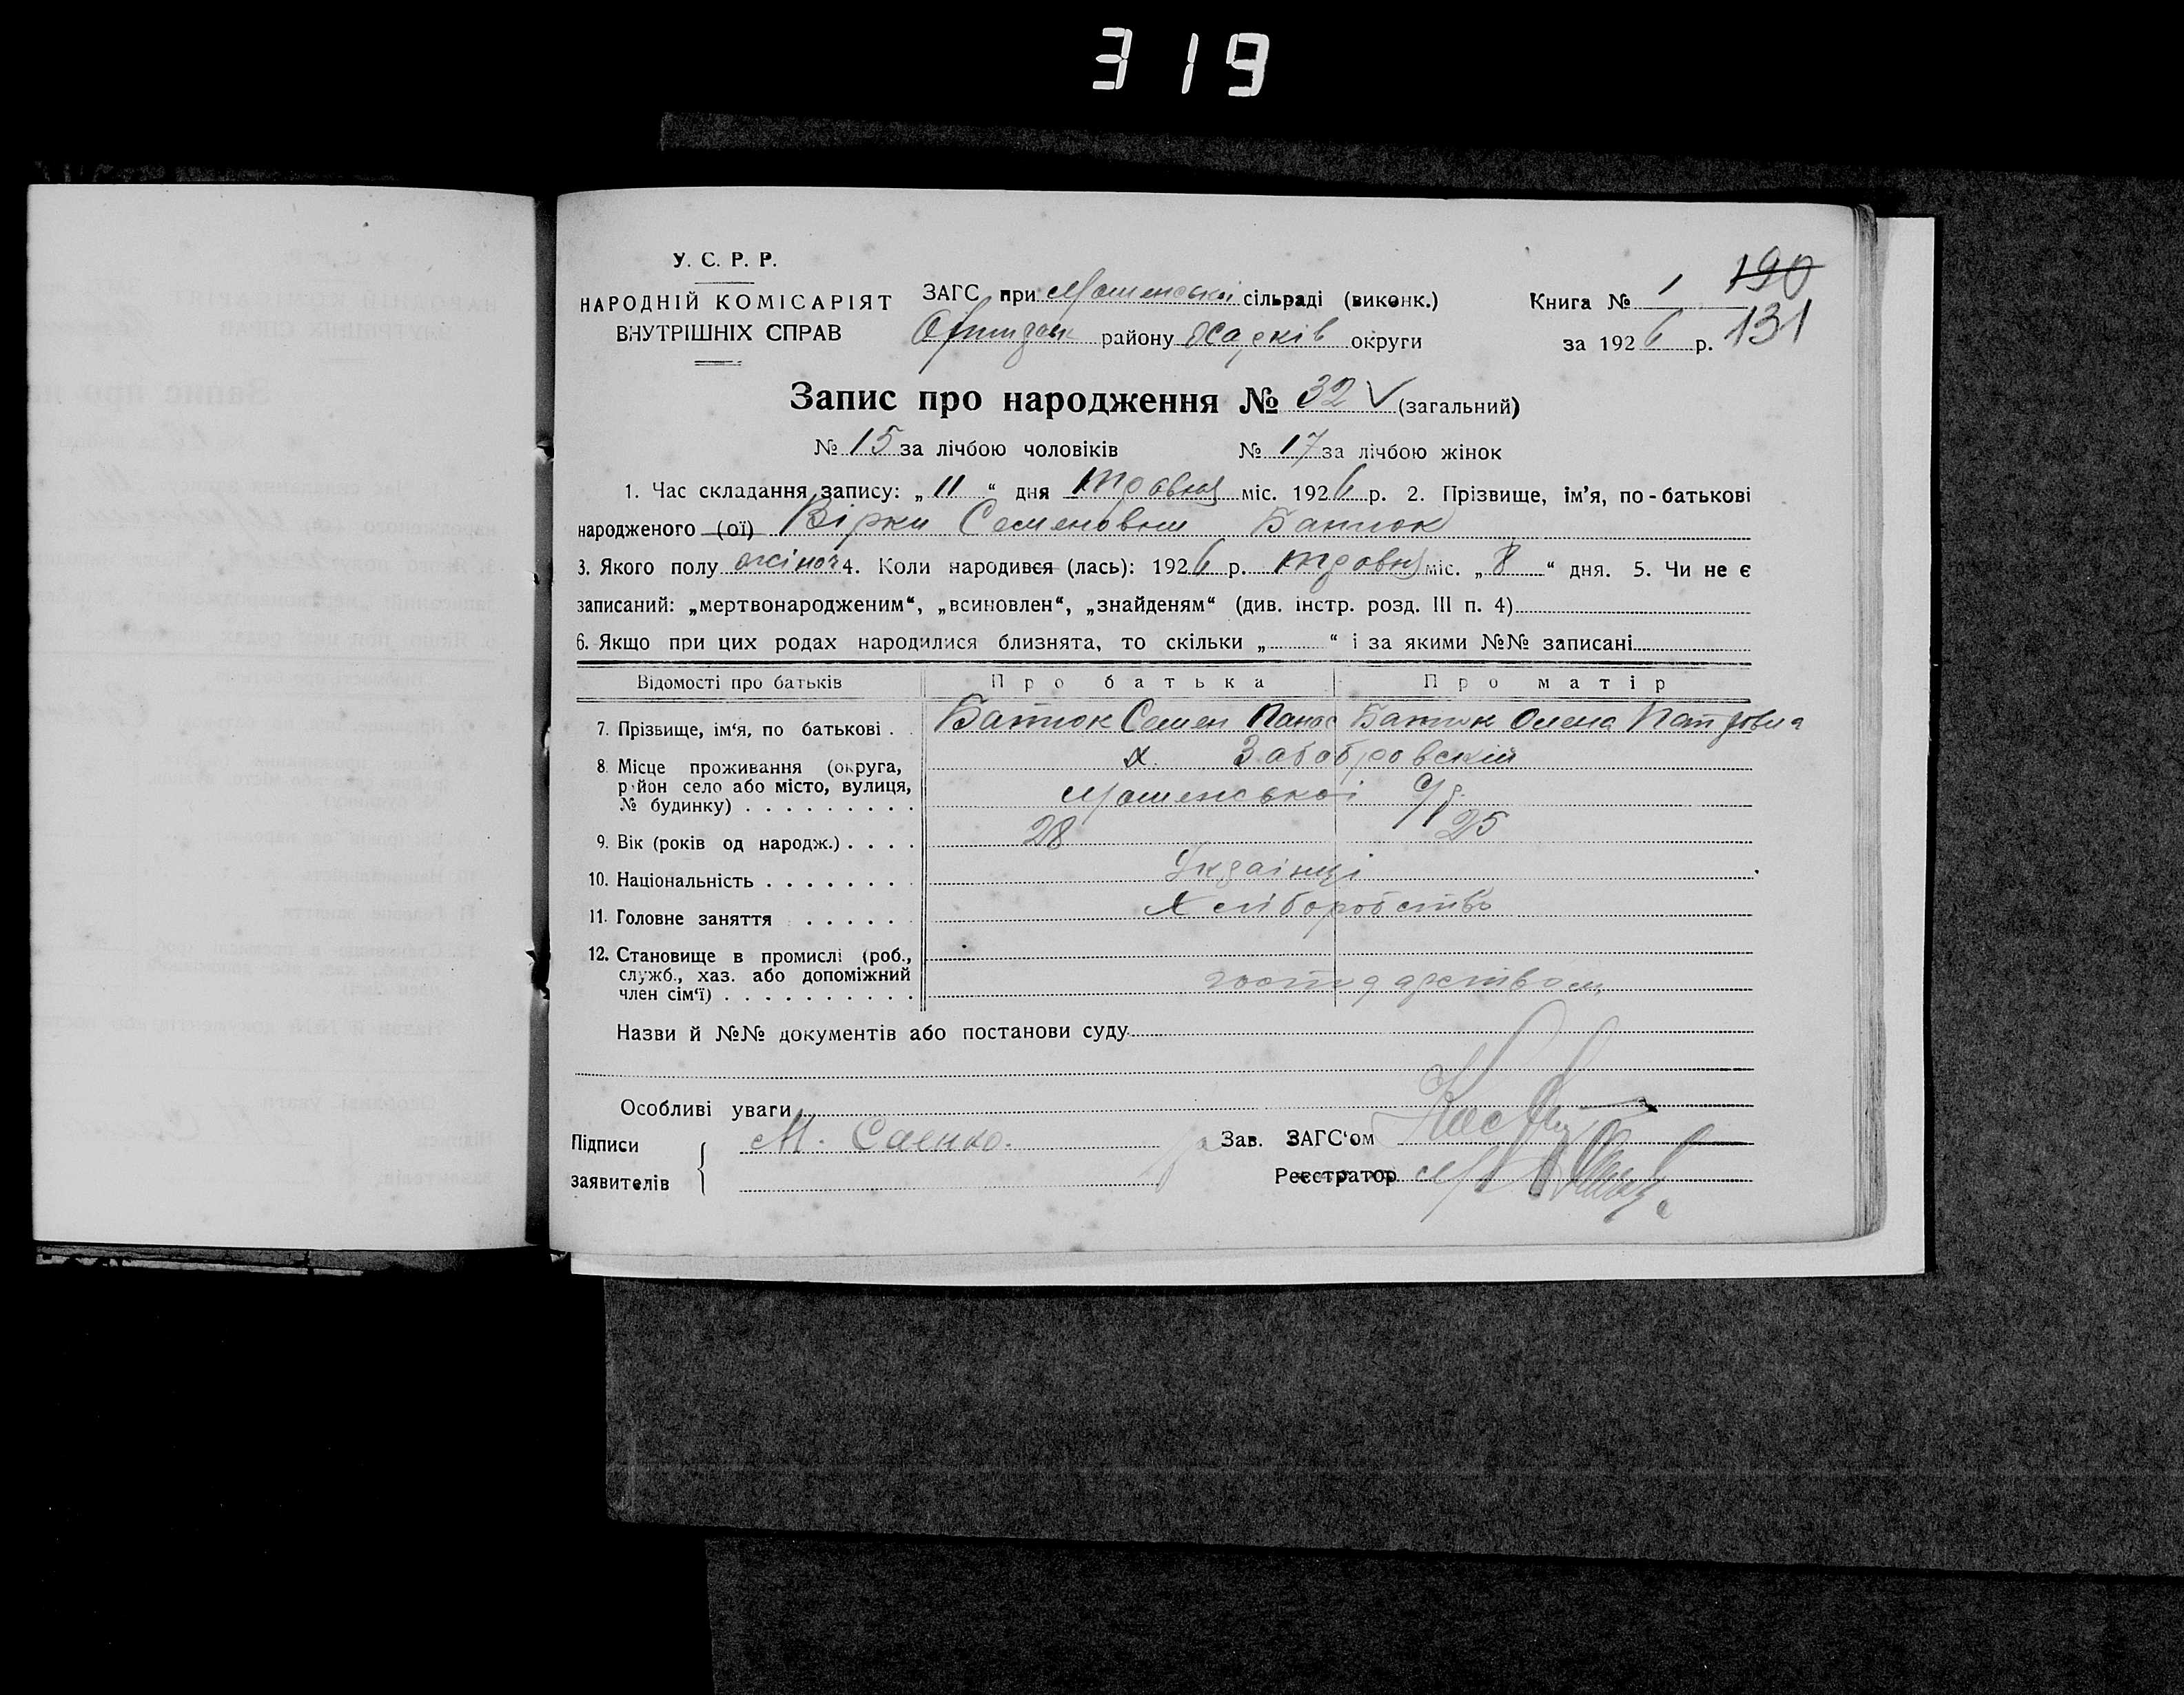 319
У. С. Р. Р.
НАРОДНІЙ КОМІСАРІЯТ
ВНУТРІШНІХ СПРАВ
ЗАГС при сільраді (виконк.)
району Харків округи
Книга № 1 190
за 1926 р. 131
Запис про народження № 32 V (загальний)
№ 15 за лічбою чоловіків № 17 за лічбою жінок
1. Час складання запису: „ 11 “ дня травня міс. 1926 р. 2. Прізвище, ім’я, по-батькові
народженого (ої) Вірки Семеновни Батюк
3. Якого полу жіноч 4. Коли народився (лась): 1926 р. травня міс. „ 8 “ дня. 5. Чи не є
записаний: „мертвонародженим“, „всиновлен“, „знайденям“ (див. інстр. розд. III п. 4)
6. Якщо при цих родах народилися близнята, то скільки „ “ і за якими №№ записані
Відомості про батьків Про батька Про матір
7. Прізвище, ім‘я, по батькові . . Батюк Семен Панас Батюк Олена Петровна
8. Місце проживання (округа, х.
район село або місто, вулиця,
№ будинку) . . . . . . . . . с/р.
9. Вік (років од народж.) . . . . 28 25
10. Національність . . . . . . . . Українці
11. Головне заняття . . . . . . Хліборобство
12. Становище в промислі (роб.,
служб., хаз. або допоміжний
член сім‘ї) . . . . . . . . . . .
Назви й №№ документів або постанови суду
Особливі уваги
Підписи М. Саенко. Зав. ЗАГС‘ом
заявителів Реєстратор